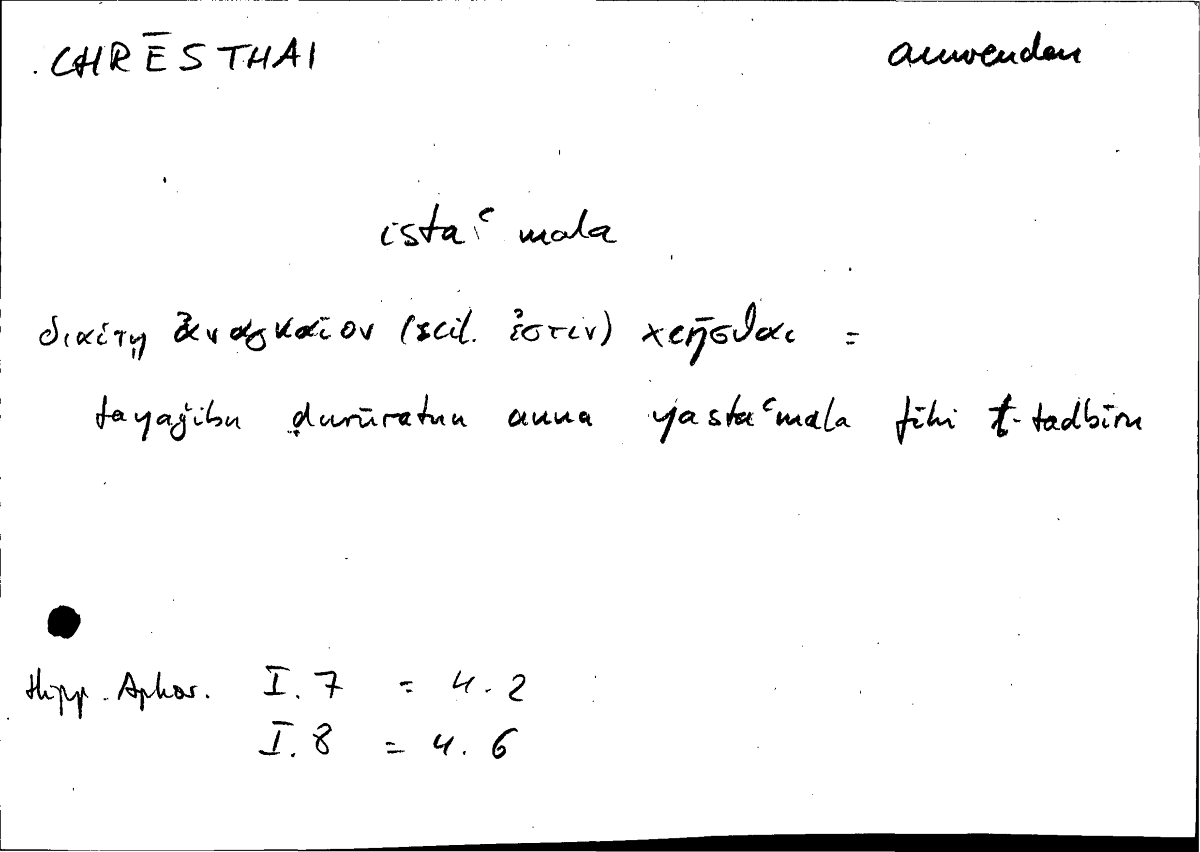 CHRĒSTHAI anwenden
istaʿmala
διαίτῃ ἀναγκαῖον (scil. ἐστιν) χρῆσθαι =
fayaǧibu ḍarūratan anna yastaʿmala fīhi t-tadbīru
Hipp. Aphor. I. 7 = 4.2
I. 8 = 4.6